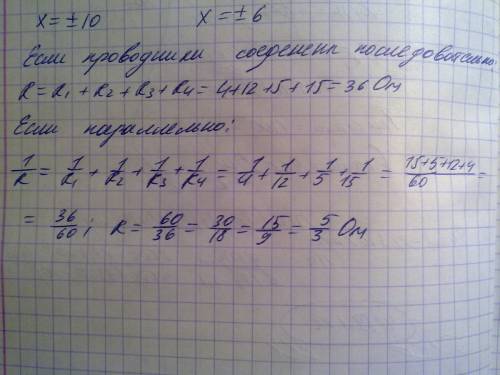 x = ± 10 x = ± 6
Если проводники соеденены последовательно:
R = R₁ + R₂ + R₃ + R₄ = 4+12+5+15 = 36 Ом
Если параллельно:
1/R = 1/R₁ + 1/R₂ + 1/R₃ + 1/R₄ = 1/4 + 1/12 + 1/5 + 1/15 = (15+5+12+4)/60 =
= 36/60 ; R = 60/36 = 30/18 = 15/9 = 5/3 Ом